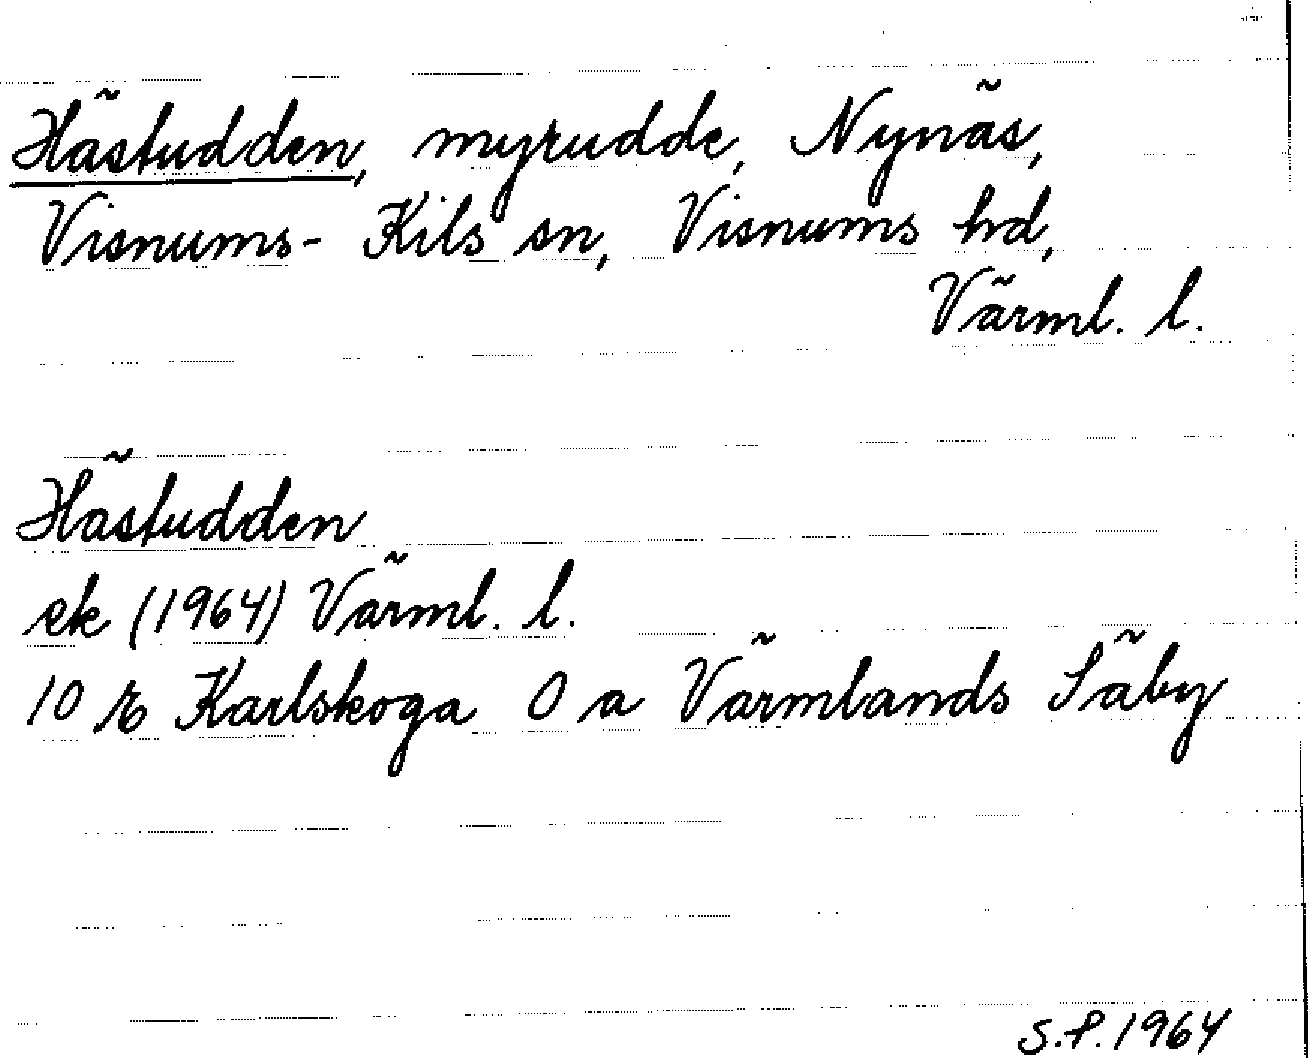 Hästudden, myrudde, Nynäs,
Visnums-Kils sn, Visnums hd,
Värml. l.
Hästudden
ek (1964) Värml. l.
10 E Karlskoga 0 a Värmlands Säby
S.P. 1964